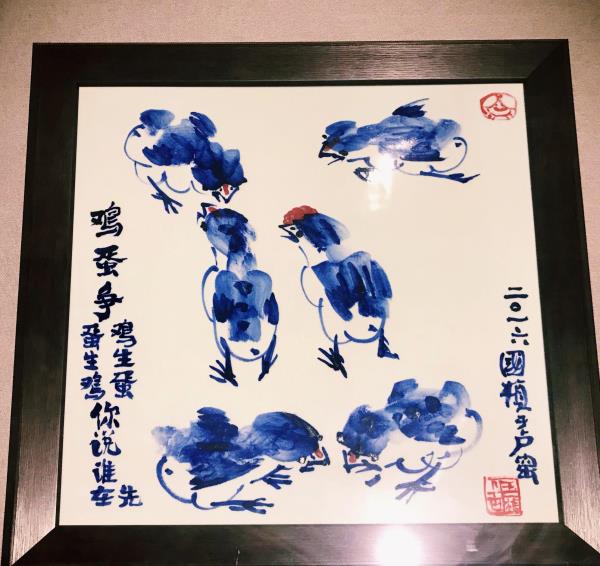 鸡蛋争
鸡生蛋
蛋生鸡
你说谁在先
二〇一六國